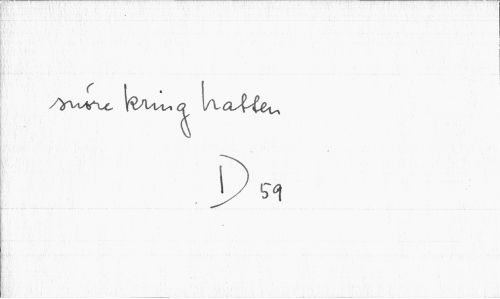 snöre kring hatten
D 59